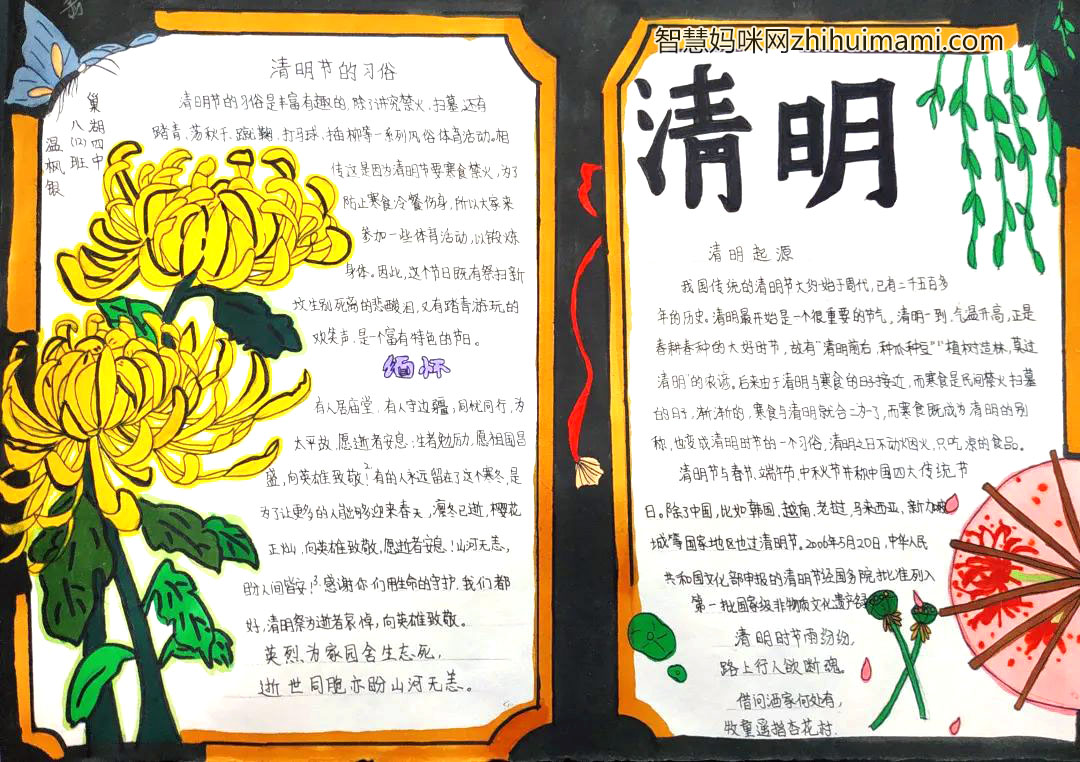 智慧妈咪网zhihuimami.com
清明节的习俗
巢湖四中
八(12)班
温枫银
清明节的习俗是丰富有趣的,除了讲究禁火、扫墓,还有
踏青、荡秋千、蹴鞠、打马球、插柳等一系列风俗体育活动。相
传这是因为清明节要寒食禁火,为了
防止寒食冷餐伤身,所以大家来
参加一些体育活动,以锻炼
身体。因此,这个节日既有祭扫新
坟生别死离的悲酸泪,又有踏青游玩的
欢笑声,是一个富有特色的节日。
缅怀
有人居庙堂,有人守边疆,同忧同行,为
太平故,愿逝者安息,生者勉励,愿祖国昌
盛,向英雄致敬!2.有的人永远留在了这个寒冬,是
为了让更多的人能够迎来春天,凛冬已逝,樱花
正灿,向英雄致敬,愿逝者安息!山河无恙,
盼人间皆安!3.感谢你们用生命的守护,我们都
好,清明祭为逝者哀悼,向英雄致敬。
英烈为家园舍生忘死,
逝世同胞亦盼山河无恙。
清明
清明起源
我国传统的清明节大约始于周代,已有二千五百多
年的历史。清明最开始是一个很重要的节气,清明一到,气温升高,正是
春耕春种的大好时节,故有“清明前后,种瓜种豆”“植树造林,莫过
清明”的农谚。后来由于清明与寒食的日子接近,而寒食是民间禁火扫墓
的日子,渐渐的,寒食与清明就合二为一了,而寒食既成为清明的别
称,也变成清明时节的一个习俗,清明之日不动烟火,只吃凉的食品。
清明节与春节、端午节、中秋节并称中国四大传统节
日。除了中国,比如韩国、越南、老挝、马来西亚、新加坡
城等国家地区也过清明节。2006年5月20日,中华人民
共和国文化部申报的清明节经国务院批准列入
第一批国家级非物质文化遗产
清明时节雨纷纷,
路上行人欲断魂。
借问酒家何处有,
牧童遥指杏花村.